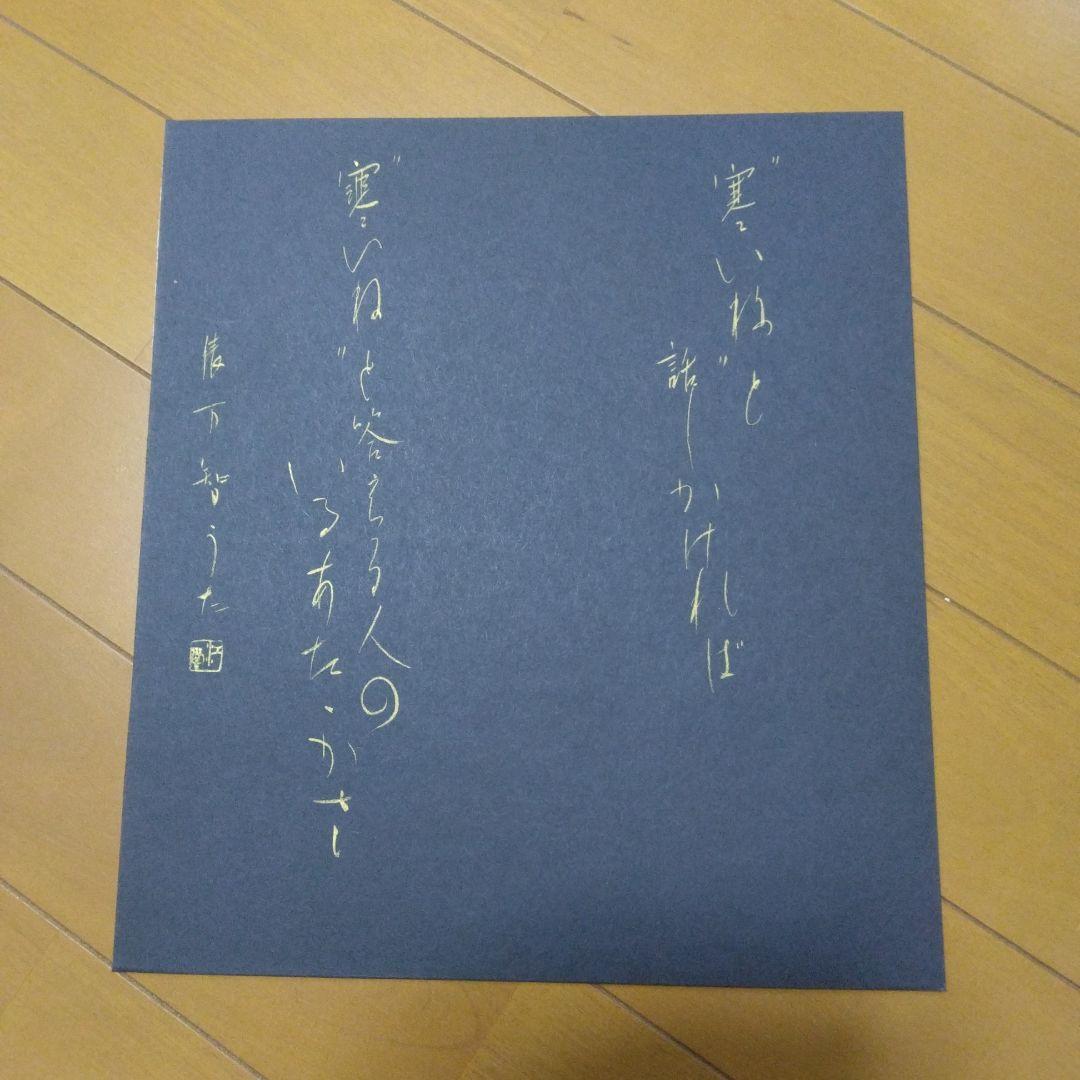 "寒いね"と
話しかければ
"寒いね"と答える人の
いるあたゝかさ
俵万智うた